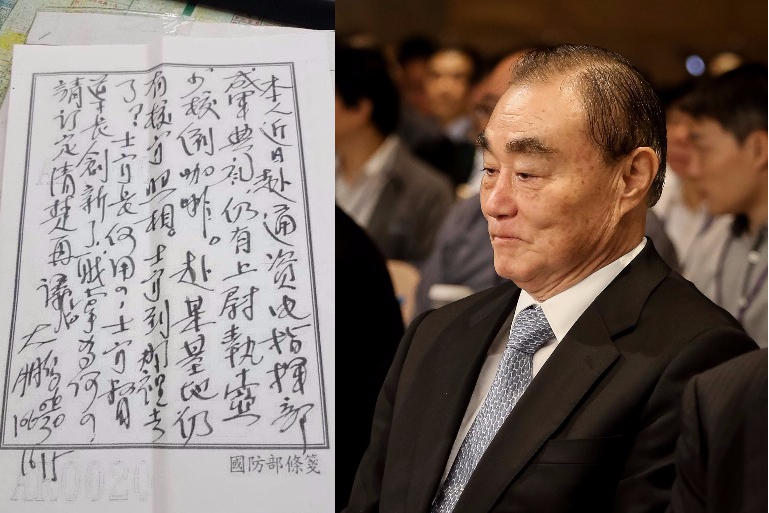 本人近日赴通資电指揮部
成軍典礼，仍有上尉執壺
少校倒咖啡。赴某基地仍
有校官照相。士官到那裡去
了？士官長何用？士官督
導長創新了職掌為何？
請訂定清楚再議
大鵬
1615
國防部條箋